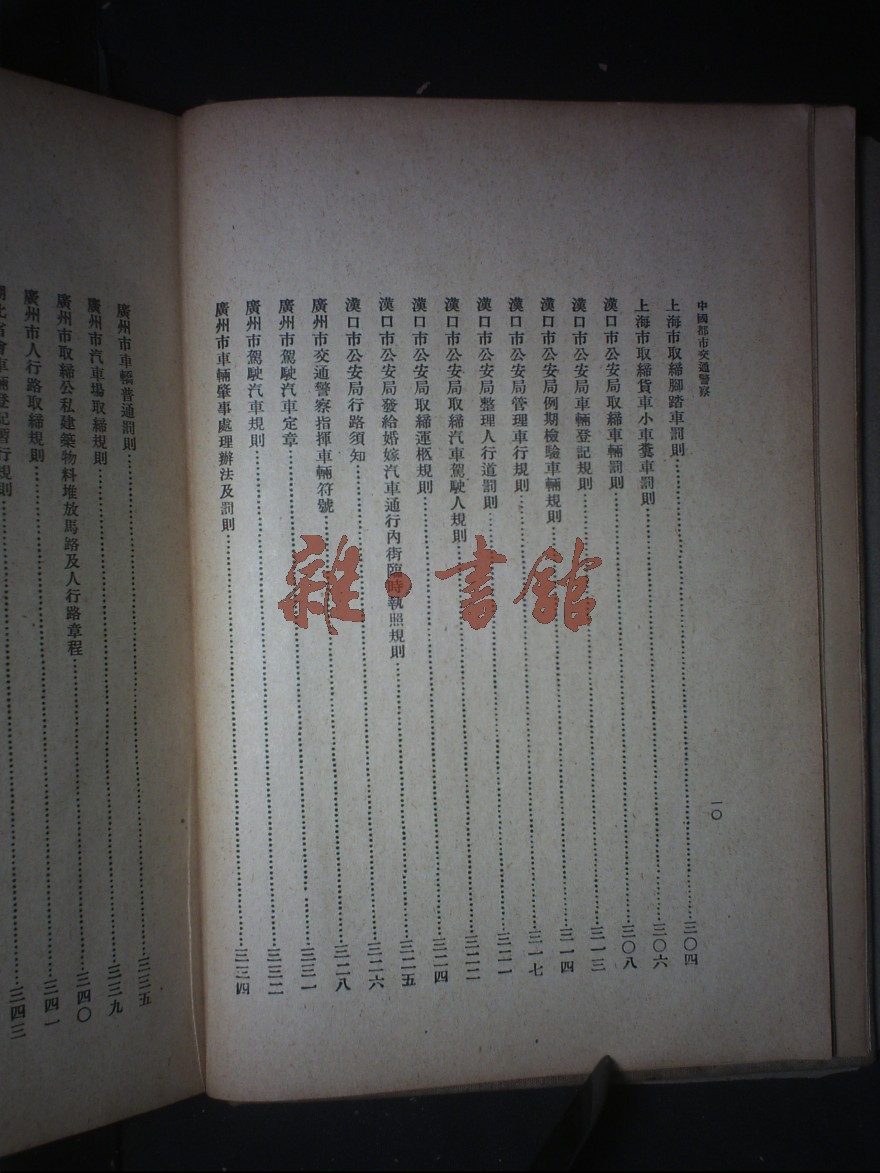 中國都市交通警察
一〇
上海市取締腳踏車罰則……三〇四
上海市取締貨車小車糞車罰則……三〇六
漢口市公安局取締車輛罰則……三〇八
漢口市公安局車輛登記規則……三一三
漢口市公安局例期檢驗車輛規則……三一四
漢口市公安局管理車行規則……三一七
漢口市公安局整理人行道罰則……三二一
漢口市公安局取締汽車駕駛人規則……三二二
漢口市公安局取締運柩規則……三二四
漢口市公安局發給婚嫁汽車通行內街臨時執照規則……三二五
漢口市公安局行路須知……三二六
廣州市交通警察指揮車輛符號……三二八
廣州市駕駛汽車定章……三三一
廣州市駕駛汽車規則……三三二
廣州市車輛肇事處理辦法及罰則……三三四
廣州市車轎普通罰則……三三五
廣州市汽車場取締規則……三三九
廣州市取締公私建築物料堆放馬路及人行路章程……三四〇
廣州市人行路取締規則……三四一
北省會車輛登記暫行規則……三四三
雜·書館